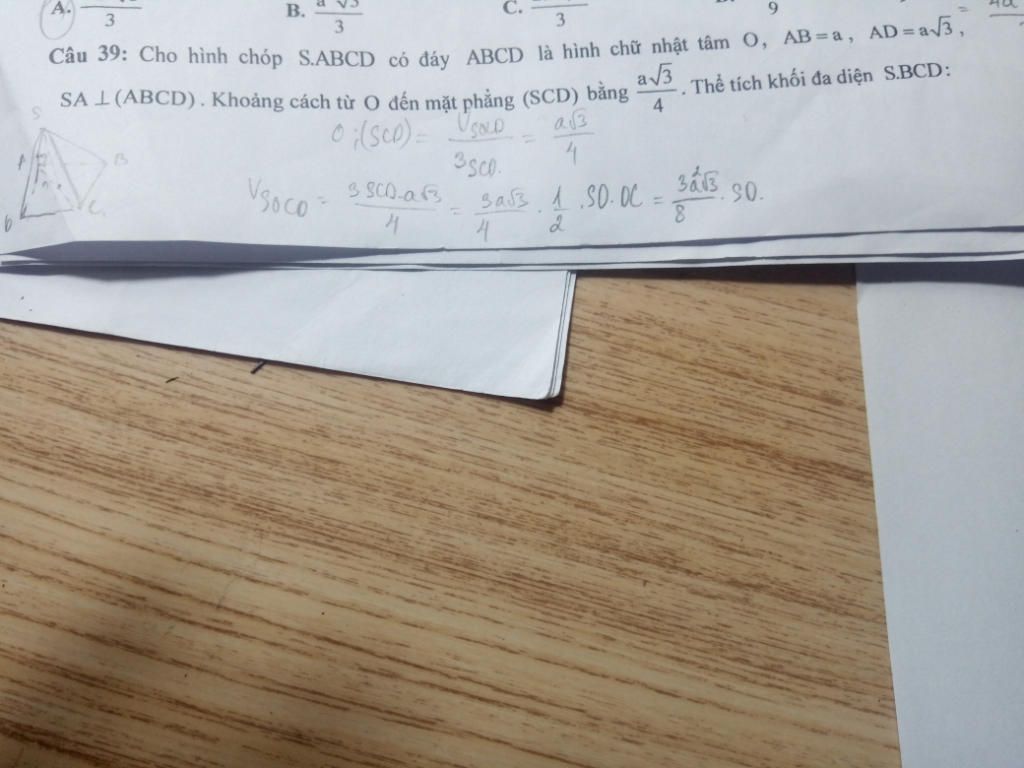 A. 3
B. a√3/3
C. 3
9
Câu 39: Cho hình chóp S.ABCD có đáy ABCD là hình chữ nhật tâm O, AB = a, AD = a√3,
SA ⊥ (ABCD). Khoảng cách từ O đến mặt phẳng (SCD) bằng a√3/4. Thể tích khối đa diện S.BCD:
S
O;(SCD) = V SOCD / 3 SCD. = a√3/4
A B
V SOCD = 3 SCD.a√3/4 = 3a√3/4 . 1/2 . SD.DC = 3a²√3/8 . SD.
D C